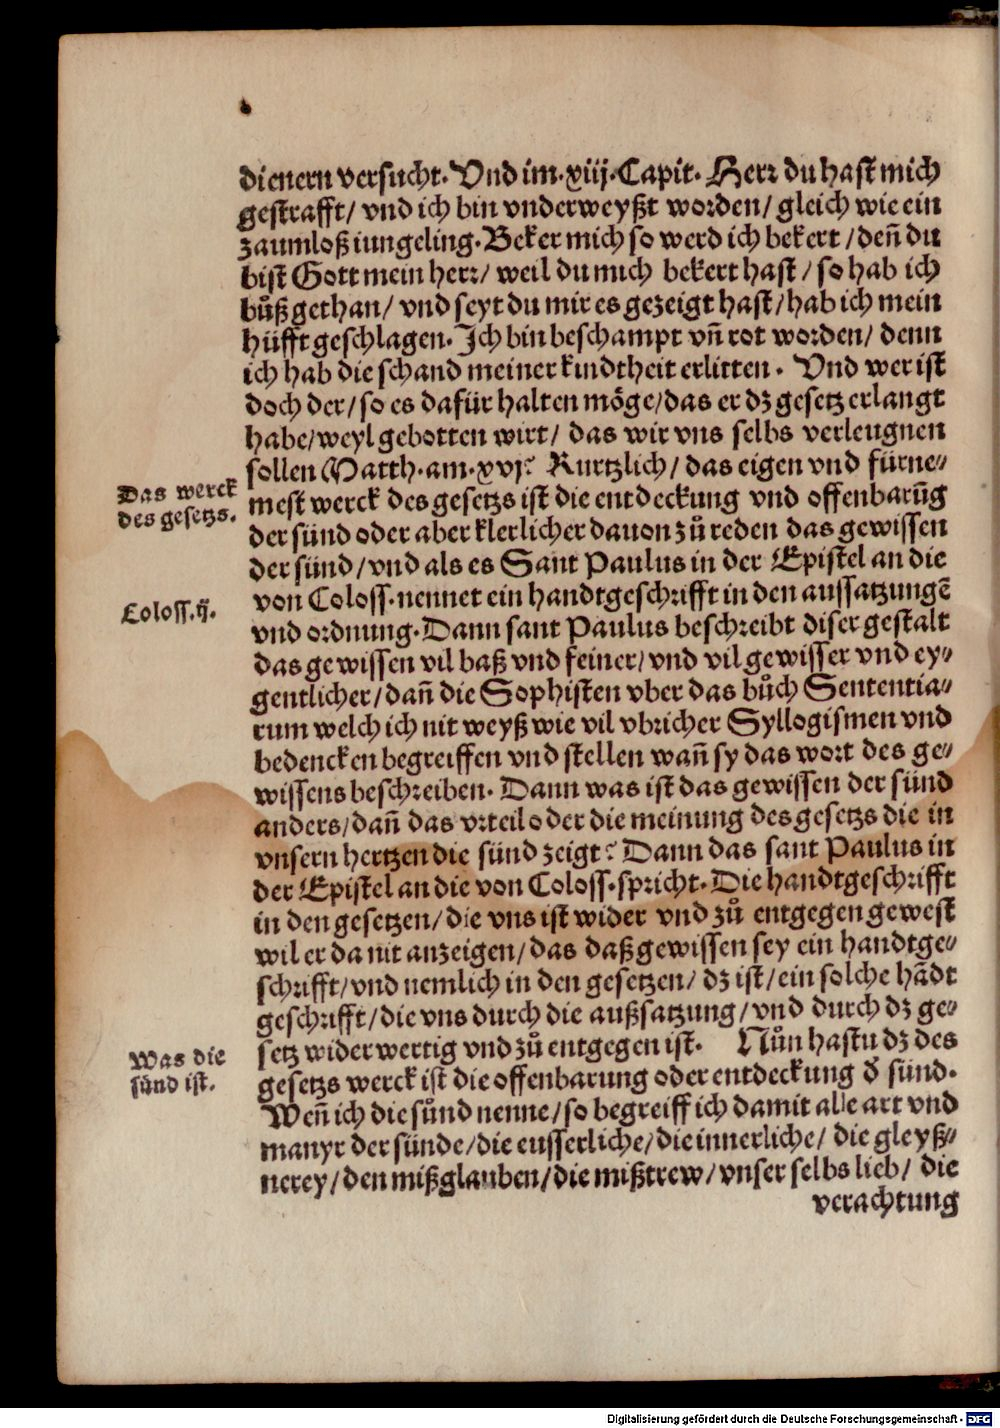 dienern versucht. Vnd im .xiij. Capit. Herr du hast mich
gestrafft/ vnd ich bin vnderweyßt worden/ gleich wie ein
zaumloß iungeling. Beker mich so werd ich bekert/ deñ du
bist Gott mein herr/ weil du mich bekert hast/ so hab ich
bůß gethan/ vnd seyt du mir es gezeigt hast/ hab ich mein
hüfft geschlagen. Ich bin beschampt vñ rot worden/ denn
ich hab die schand meiner kindtheit erlitten. Vnd wer ist
doch der/ so es dafür halten möge/ das er dz gesetz erlangt
habe/ weyl gebotten wirt/ das wir vns selbs verleugnen
sollen Matth. am .xvj? Kurtzlich/ das eigen vnd fürne⸗
Das werck
des gesetzs.
mest werck des gesetzs ist die entdeckung vnd offenbarūg
der sünd oder aber klerlicher dauon zů reden das gewissen
der sünd/ vnd als es Sant Paulus in der Epistel an die
von Coloss. nennet ein handtgeschrifft in den aussatzungē
Coloss. ij.
vnd ordnung. Dann sant Paulus beschreibt diser gestalt
das gewissen vil baß vnd feiner/ vnd vil gewisser vnd ey⸗
gentlicher/ dañ die Sophisten vber das bůch Sententia⸗
rum welch ich nit weyß wie vil vbricher Syllogismen vnd
bedencken begreiffen vnd stellen wañ sy das wort des ge⸗
wissens beschreiben. Dann was ist das gewissen der sünd
anders/ dañ das vrteil oder die meinung des gesetzs die in
vnsern hertzen die sünd zeigt? Dann das sant Paulus in
der Epistel an die von Coloss. spricht. Die handtgeschrifft
in den gesetzen/ die vns ist wider vnd zů entgegen gewest
wil er da nit anzeigen/ das daß gewissen sey ein handtge⸗
schrifft/ vnd nemlich in den gesetzen/ dz ist/ ein solche hādt
geschrifft/ die vns durch die außsatzung/ vnd durch dz ge⸗
setz widerwertig vnd zů entgegen ist. Nůn hastu dz des
Was die
sünd ist.
gesetzs werck ist die offenbarung oder entdeckung ð sünd.
Weñ ich die sůnd nenne/ so begreiff ich damit alle art vnd
manyr der sünde/ die eusserliche/ die innerliche/ die gleyß⸗
nerey/ den mißglauben/ die mißtrew/ vnser selbs lieb/ die
verachtung
Digitalisierung gefördert durch die Deutsche Forschungsgemeinschaft - DFG